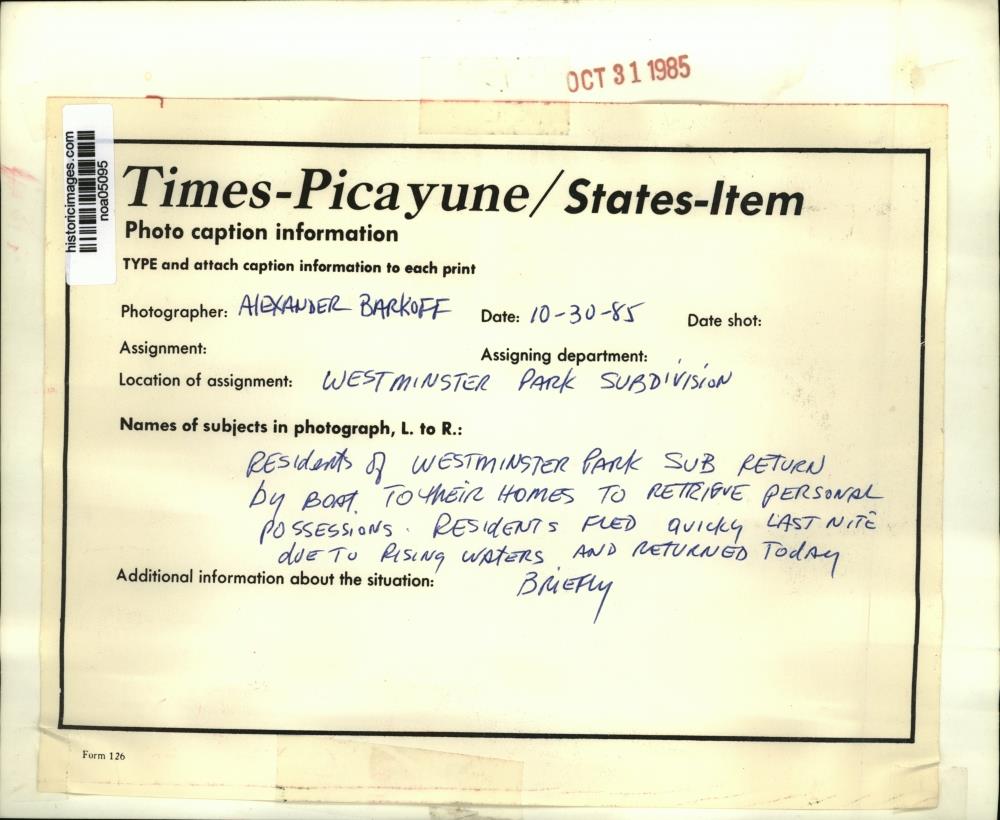 OCT 31 1985
historicimages.com
noa05095
Times-Picayune/States-Item
Photo caption information
TYPE and attach caption information to each print
Photographer: ALEXANDER BARKOFF Date: 10-30-85 Date shot:
Assignment: Assigning department:
Location of assignment: WESTMINSTER PARK SUBDIVISION
Names of subjects in photograph, L. to R.:
RESIdents of WESTMINSTER PARK SUB RETURN
by BOAT TO their HOMES TO RETRIEVE PERSONAL
POSSESSIONS. RESIDENTS FLED QUICKLY LAST NITE
dUE TO RISING WATERS AND RETURNED TODAY
Additional information about the situation: BRIEFLY
Form 126